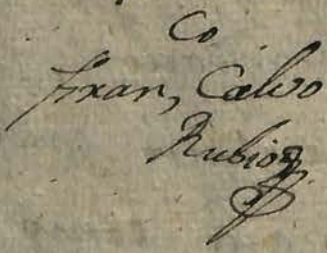 co
Fran, Calvo
Rubio